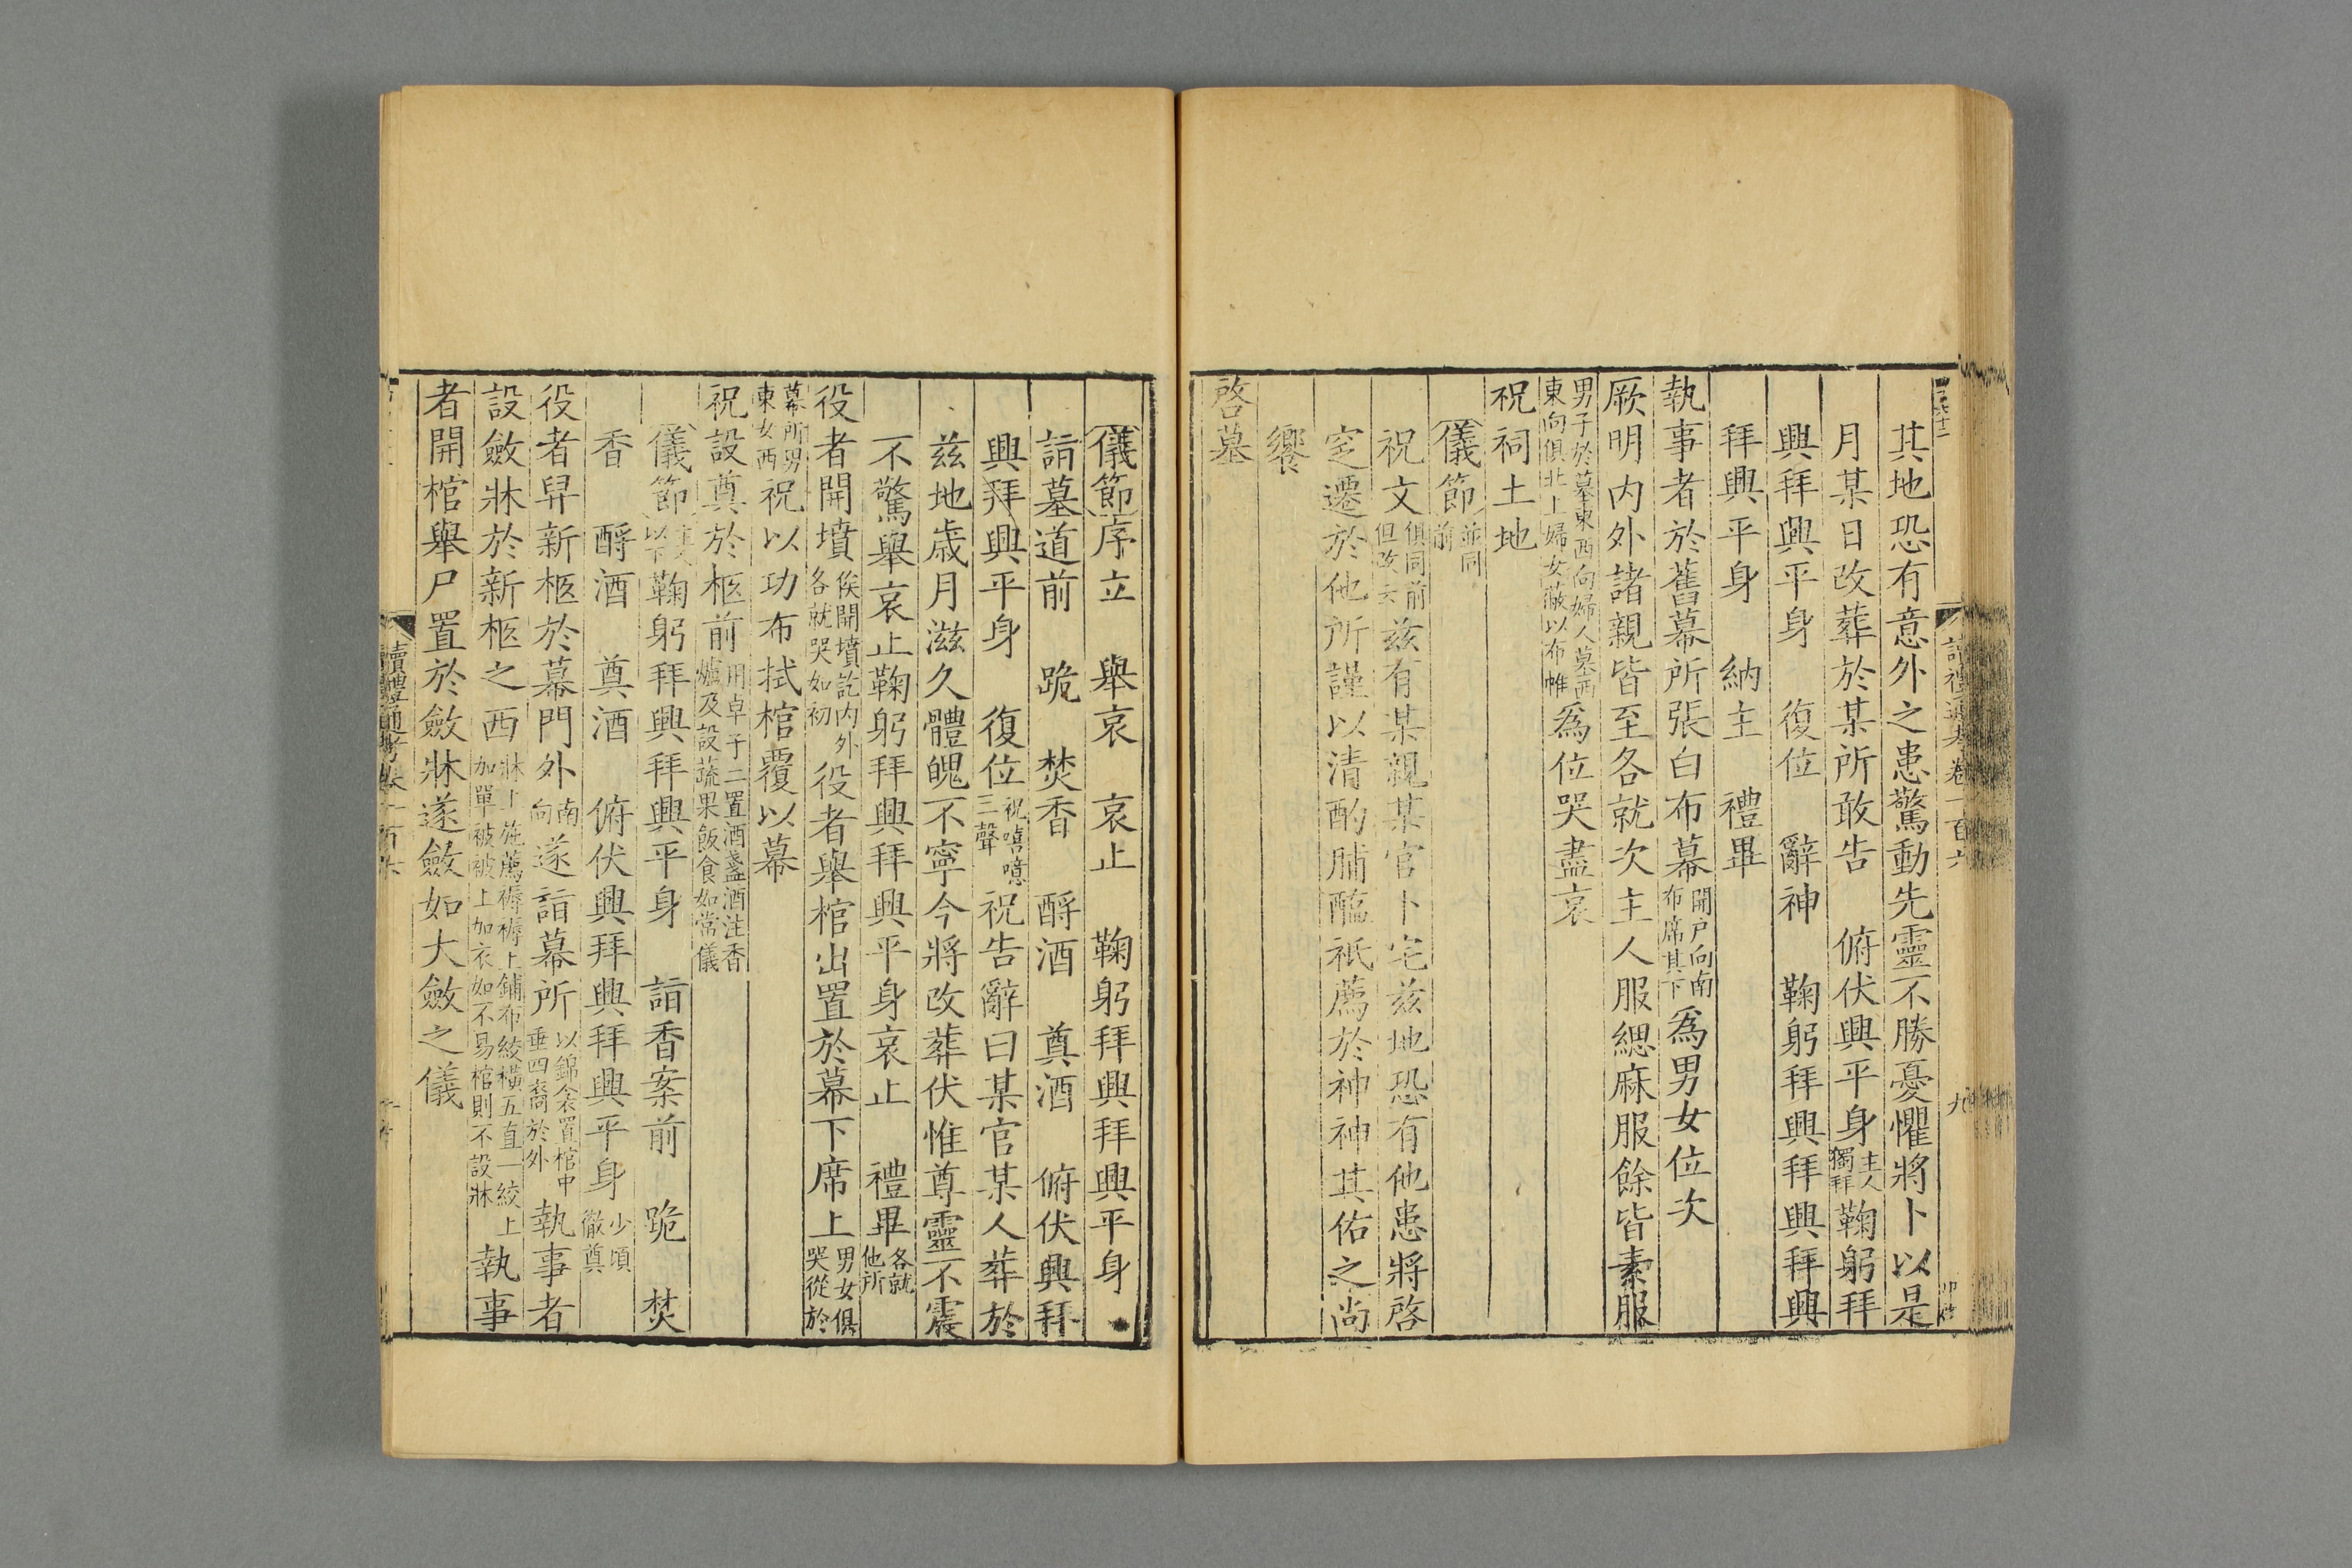 讀禮通考卷一百六
九
其地恐有意外之患驚動先靈不勝憂懼將卜以是
月某日改葬於某所敢告 俯伏興平身主人獨拜鞠躬拜
興拜興平身 復位 辭神 鞠躬拜興拜興拜興
拜興平身 納主 禮畢
執事者於舊幕所張白布幕開戶向南布席其下爲男女位次
厥明內外諸親皆至各就次主人服緦麻服餘皆素服
男子於墓東西向婦人墓西東向俱北上婦女蔽以布帷爲位哭盡哀
祝祠土地
儀節並同前
祝文俱同前但改云茲有某親某官卜宅茲地恐有他患將啓
窆遷於他所謹以清酌脯醢祗薦於神神其佑之尚
饗
啓墓
儀節序立 舉哀 哀止 鞠躬拜興拜興平身
詣墓道前 跪 焚香 酹酒 奠酒 俯伏興拜
興拜興平身 復位祝噫嘻三聲祝告辭曰某官某人葬於
茲地歲月滋久體魄不寧今將改葬伏惟尊靈不震
不驚舉哀哀止鞠躬拜興拜興平身哀止 禮畢各就他所
役者開墳俟開墳訖內外各就哭如初役者舉棺出置於幕下席上男女俱哭從於
幕所男東女西祝以功布拭棺覆以幕
祝設奠於柩前用卓子二置酒盞酒注香爐及設蔬果飯食如常儀
儀節主人以下鞠躬拜興拜興平身 詣香案前 跪 焚
香 酹酒 奠酒 俯伏興拜興拜興平身少頃徹奠
役者舁新柩於幕門外南向遂詣幕所以錦衾置棺中垂四裔於外執事者
設斂牀於新柩之西牀上施薦褥褥上鋪布絞橫五直一絞上加單被被上加衣如不易棺則不設牀執事
者開棺舉尸置於斂牀遂斂如大斂之儀
讀禮通考卷一百六